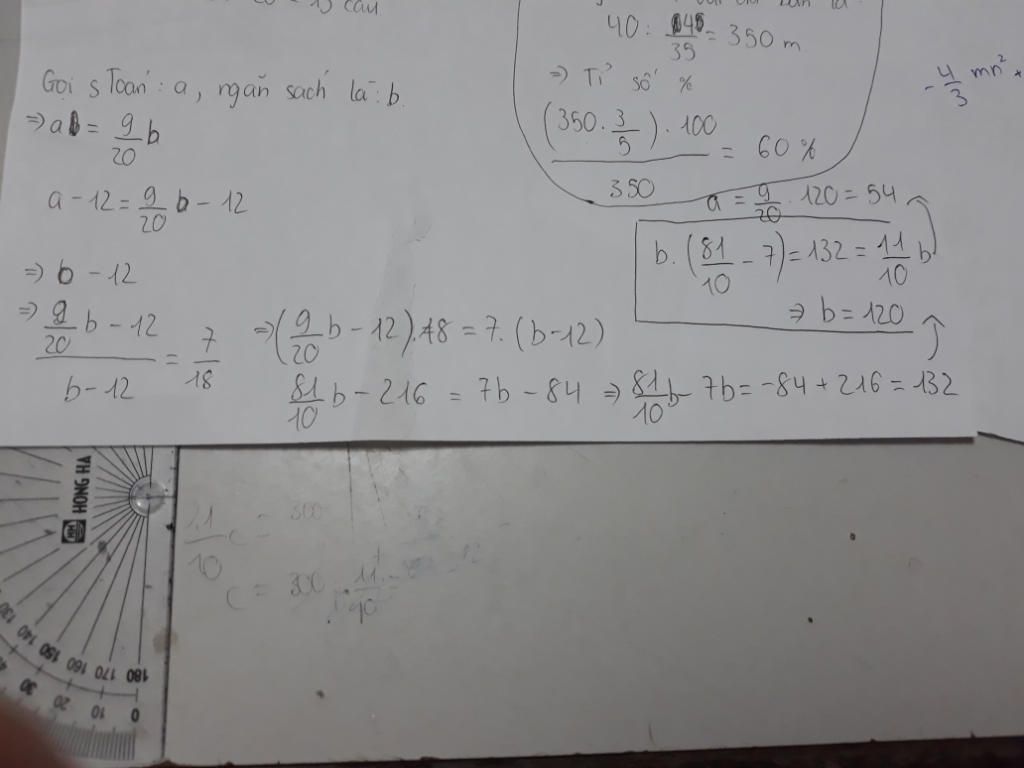 Gọi s Toán : a, ngăn sách là : b.
⇒ a = 9/20 b
a - 12 = 9/20 b - 12
⇒ b - 12
⇒ (9/20 b - 12)/(b - 12) = 7/18
⇒ (9/20 b - 12).18 = 7.(b-12)
81/10 b - 216 = 7b - 84 ⇒ 81/10 b - 7b = -84 + 216 = 132
40 : /35 = 350 m
⇒ Tỉ số %
(350 . 3/5) . 100 / 350 = 60 %
a = 9/20 . 120 = 54
b. (81/10 - 7) = 132 = 11/10 b
⇒ b = 120
- 4/3 mn² +
HONG HA
10 c = 300
c = 300 . 11
180 170 160 150 140 130
0 10 20 30